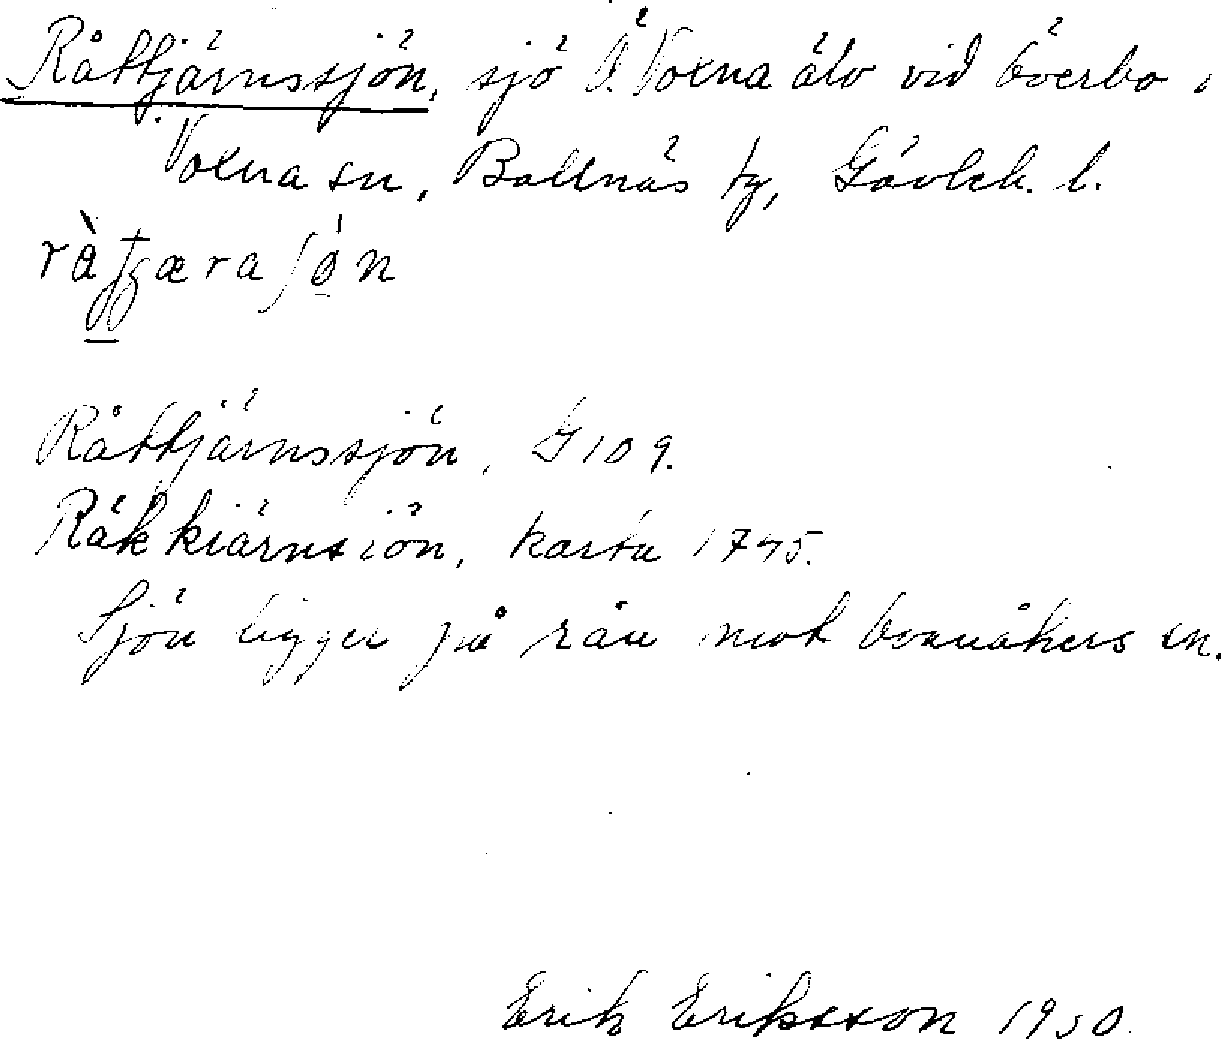 Råttjärnssjön, sjö Ö. Voxna älv vid överbo i
Voxna sn, Bollnäs fg, Gävleb. l.
Råttjärnssjön, G 109.
Råkkiärnsiön, karta 1745.
Sjön ligger på rån mot voxnåkers sn.
Erik Eriksson 1930.